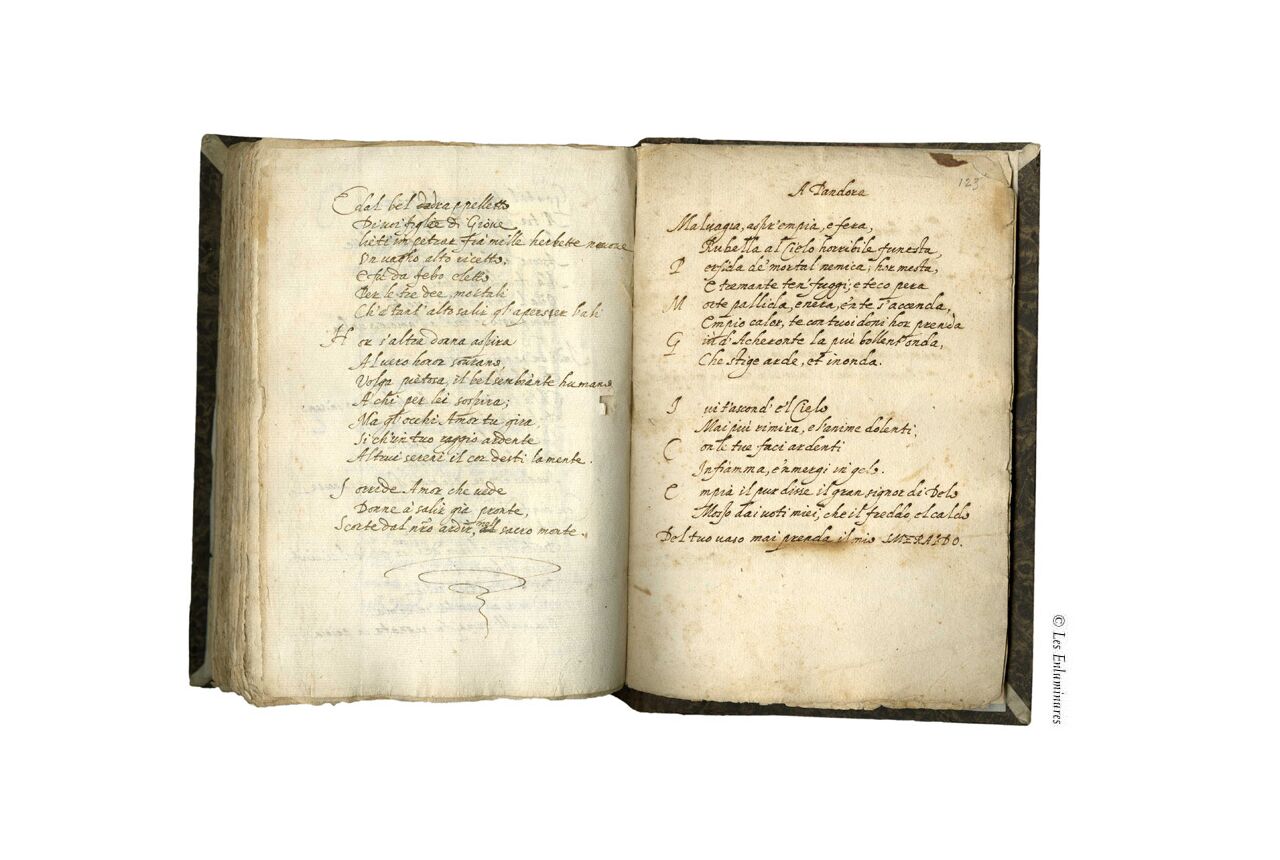 E dal bel drappelletto
Di voi figlie di Giove
lieti impetrar fra mille herbette nuove
Un vagho alto ricetto,
E fu da febo eletto
Per le tre dee, mortali
Ch'è tant' alto salir gl'aperser l'ali
Hor s'altra donna aspira
Al vero honor sourano
Volga pietosa, il bel senbiante humano
A chi per lei sospira;
Ma gl'occhi Amor tu gira
Si ch'un tuo raggio ardente
Altrui sereni il cor desti la mente.
Sorride Amor che vede
Donne à salir già pronte,
Scorte dal nrō ardir, nell sacro monte.
123
A Pandora
Malvagia, aspr' empia, e fera,
Rubella al Cielo horribile funesta,
Perfida de' mortal nemica; hor mesta,
E tremante ten' fuggi; e teco pera
Morte pallida, e nera, e'n te s'accenda,
Empio calor, te con tuoi doni hor prenda
Giù d'Acheronte la più bollent' onda,
Che stige arde, et inonda.
Ivi t'ascond' e'l Cielo
Mai più rimira, e l'anime dolenti,
Con le tue faci ardenti
Infiamma, e'nmergi in gelo.
Empia il pur disse il gran signor di Delo
Mosso dai voti miei, che il freddo, el caldo
Del tuo vaso mai prenda il mio SMERALDO.
© Les Enluminures